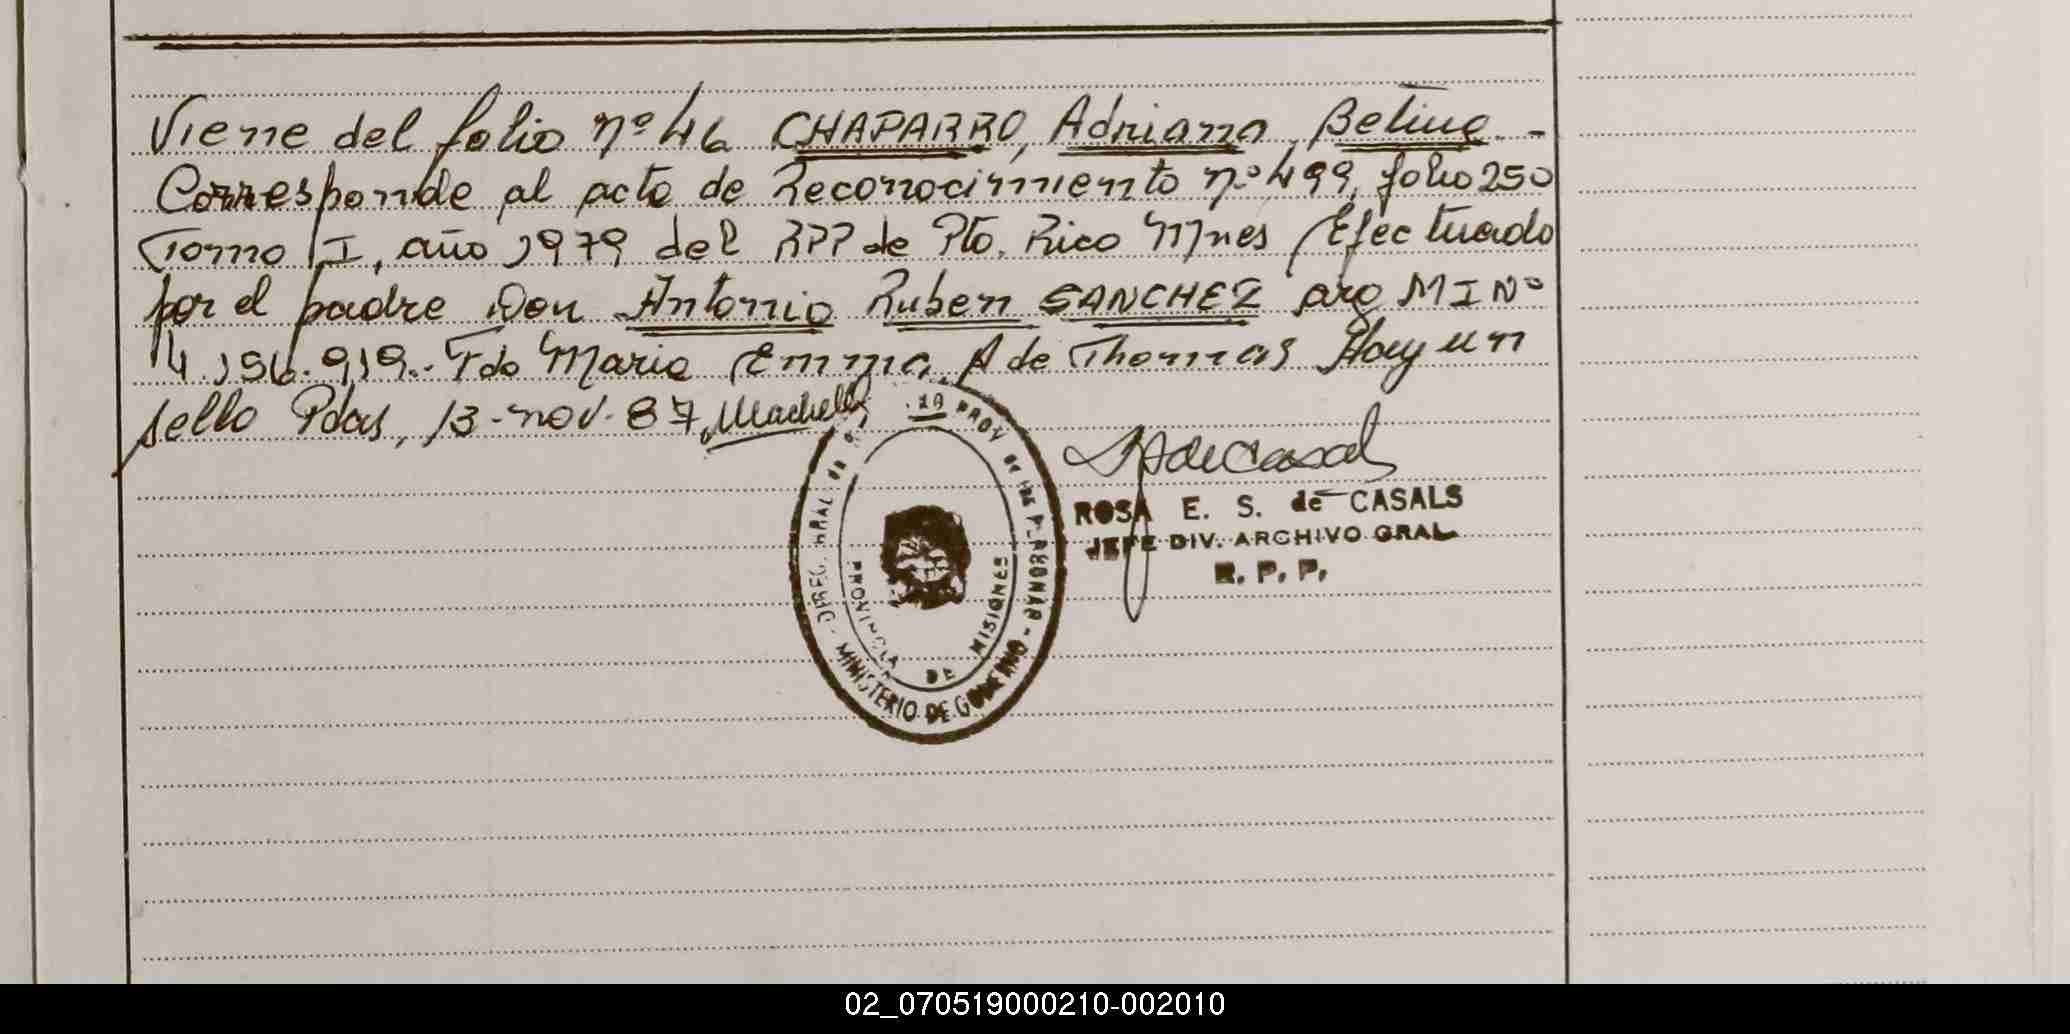 Viene del folio nº 46 CHAPARRO, Adriana Betina.-
Corresponde al acta de Reconocimiento nº 499, folio 250
Tomo I, año 1979 del RPP de Pto. Rico Mnes Efectuado
por el padre Don Antonio Ruben SANCHEZ arg MI Nº
14.196.919.- Fdo Maria Emma A de Thomas Hay un
sello Pdas, 13-nov. 87,
PROV DE LAS PERSONAS - MINISTERIO DE GOBIERNO -
PROVINCIA DE MISIONES
ROSA E. S. de CASALS
JEFE DIV. ARCHIVO GRAL
R. P. P.
02_070519000210-002010